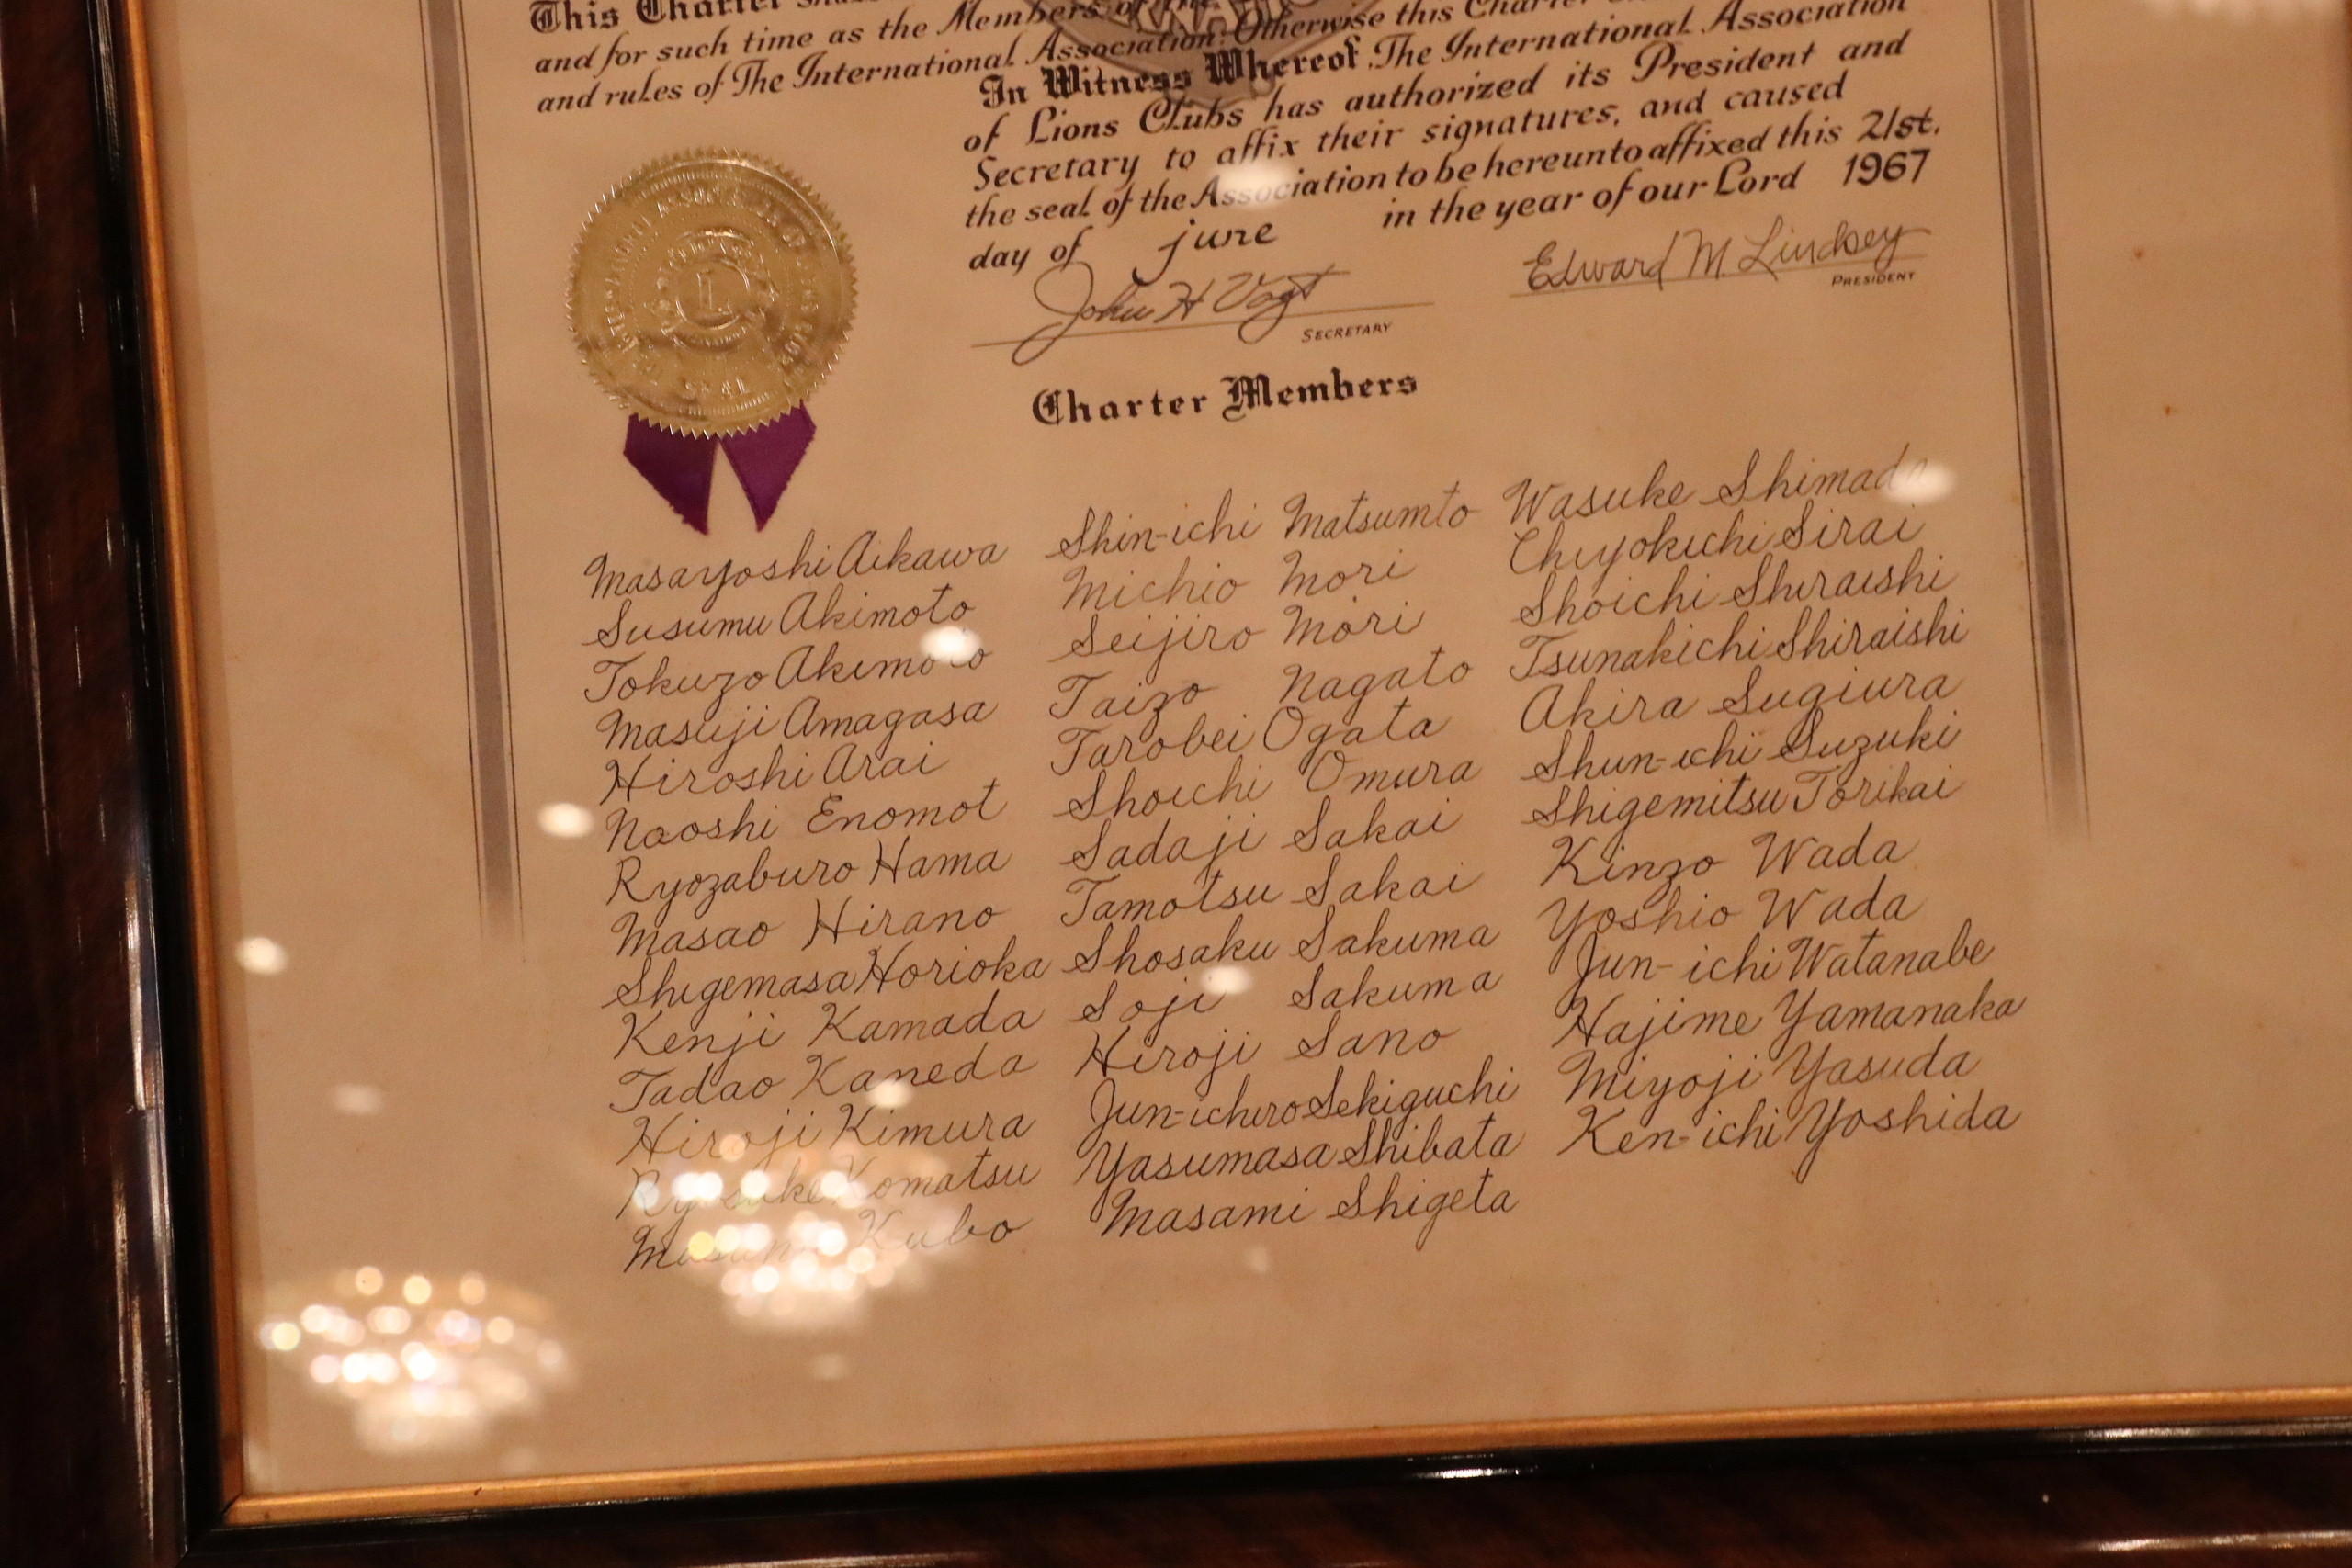 This Charter
and for such time as the Members of the
and rules of The International Association. Otherwise this Charter
In Witness Whereof The International Association
of Lions Clubs has authorized its President and
Secretary to affix their signatures, and caused
the seal of the Association to be hereunto affixed this 21st.
day of june in the year of our Lord 1967
John H Vogt
SECRETARY
Edward M. Lindsey
PRESIDENT
L
Charter Members
Masayoshi Aikawa
Susumu Akimoto
Tokuzo Akimoto
Masuji Amagasa
Hiroshi Arai
Naoshi Enomot
Ryozaburo Hama
Masao Hirano
Shigemasa Horioka
Kenji Kamada
Tadao Kaneda
Hiroji Kimura
Ryosuke Komatsu
Kubo
Shin-ichi Matsumto
Michio Mori
Seijiro Mori
Taizo Nagato
Tarobei Ogata
Shoichi Omura
Sadaji Sakai
Tamotsu Sakai
Shosaku Sakuma
Soji Sakuma
Hiroji Sano
Jun-ichiro Sekiguchi
Yasumasa Shibata
Masami Shigeta
Wasuke Shimada
Chiyokichi Sirai
Shoichi Shiraishi
Tsunakichi Shiraishi
Akira Sugiura
Shun-ichi Suzuki
Shigemitsu Torikai
Kinzo Wada
Yoshio Wada
Jun-ichi Watanabe
Hajime Yamanaka
Miyoji Yasuda
Ken-ichi Yoshida